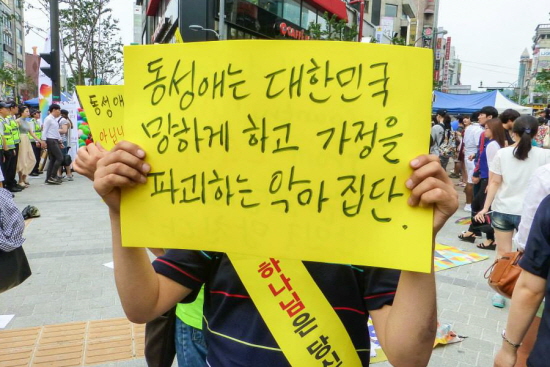 동성애는 대한민국
망하게 하고 가정을
파괴하는 악마 집단.
동성애
하나님의